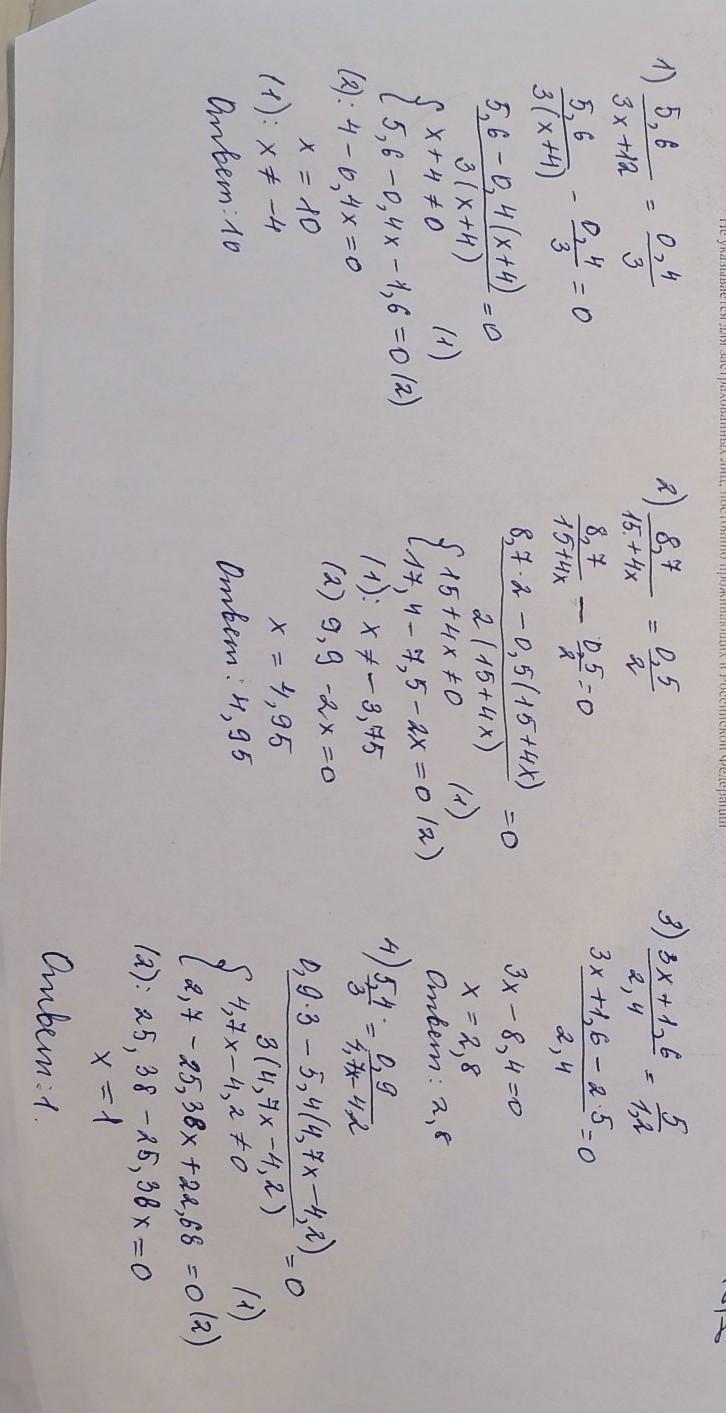 не указывается для
1) 5,6/(3x+12) = 0,4/3
5,6/(3(x+4)) - 0,4/3 = 0
(5,6 - 0,4(x+4))/(3(x+4)) = 0
{ x+4≠0 (1)
{ 5,6-0,4x-1,6=0 (2)
(2): 4-0,4x=0
x=10
(1): x≠-4
Ответ: 10
2) 8,7/(15+4x) = 0,5/2
8,7/(15+4x) - 0,5/2 = 0
(8,7·2 - 0,5(15+4x))/(2(15+4x)) = 0
{ 15+4x≠0 (1)
{ 17,4-7,5-2x=0 (2)
(1): x≠-3,75
(2) 9,9-2x=0
x=4,95
Ответ: 4,95
3) (3x+1,6)/2,4 = 5/1,2
(3x+1,6-2·5)/2,4 = 0
3x-8,4=0
x=2,8
Ответ: 2,8
4) 5,4/3 = 0,9/(4,7x-4,2)
(0,9·3 - 5,4(4,7x-4,2))/(3(4,7x-4,2)) = 0
{ 4,7x-4,2≠0 (1)
{ 2,7-25,38x+22,68=0 (2)
(2): 25,38-25,38x=0
x=1
Ответ: 1.